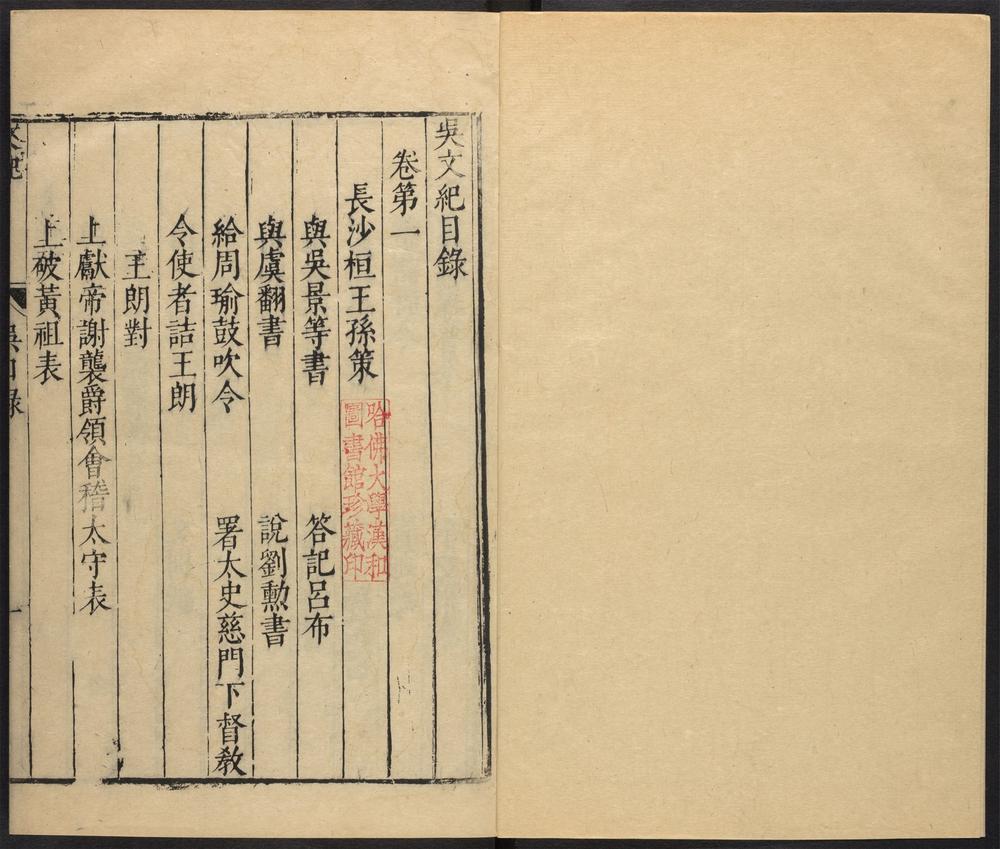 吳文紀目錄
卷第一
長沙桓王孫策
與吳景等書 答記呂布
與虞翻書 說劉勳書
給周瑜鼓吹令 署太史慈門下督教
令使者詰王朗
王朗對
上獻帝謝襲爵領會稽太守表
上破黃祖表
吳目錄 一
哈佛大學漢和
圖書館珍藏印